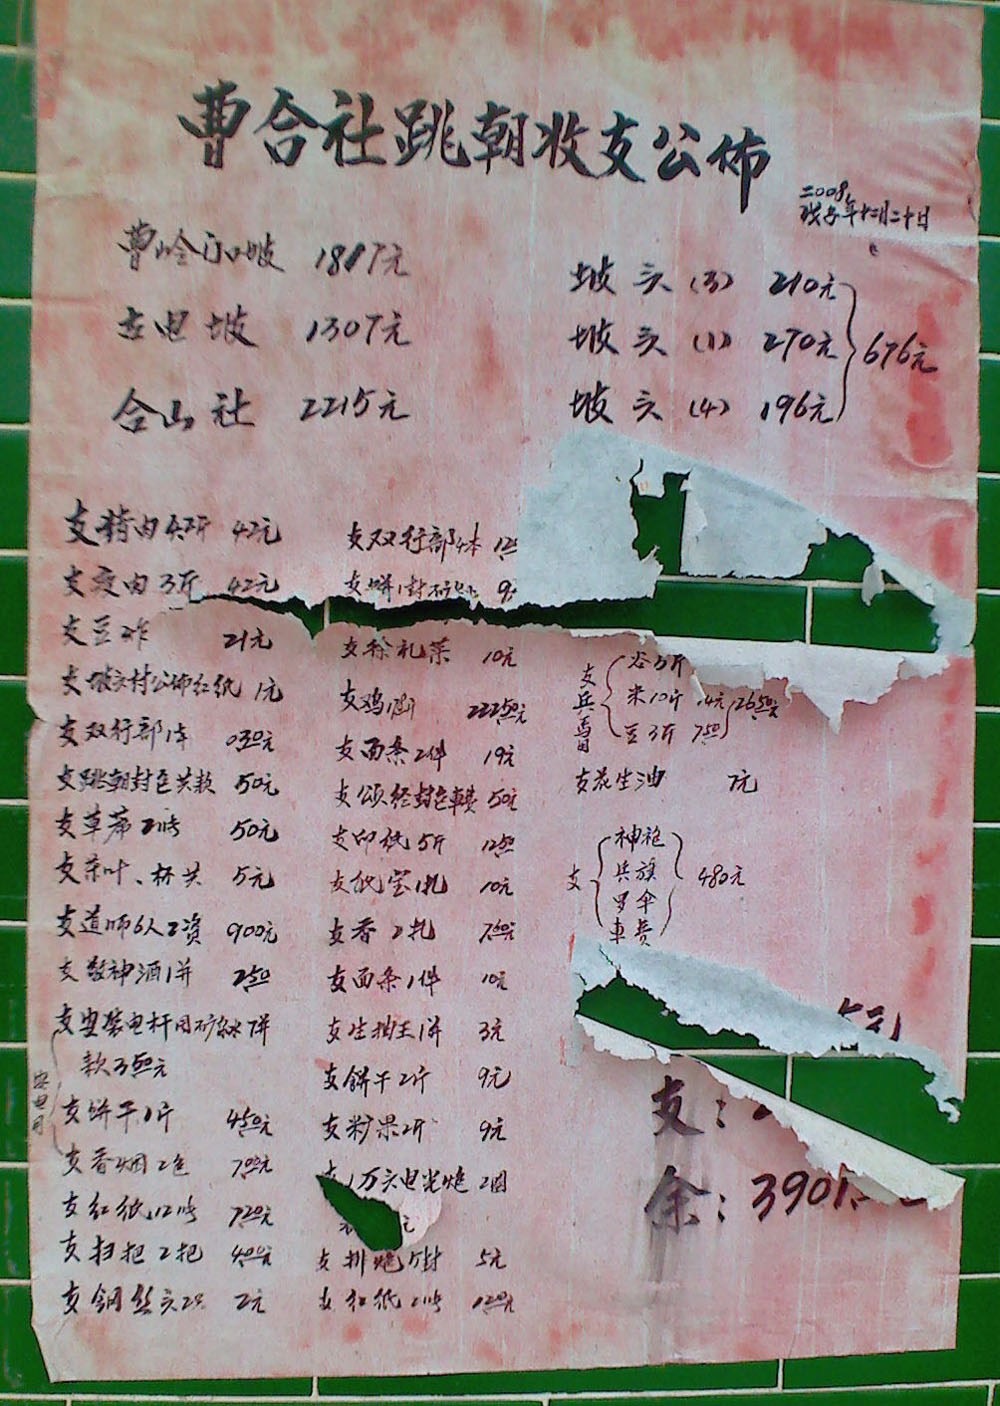 曹合社跳朝收支公佈
二〇〇8年
戊子年十二月二十日
曹岭 坡 1817元
坡头(3) 210元
坡 1307元
坡头(1) 270元
合山社 2215元
坡头(4) 196元
676元
支猪肉 斤 42元
支瘦肉3斤 42元
支豆 21元
支坡头村公佈红纸 1元
支双行部1本
支跳朝封包共款 50元
支草席 50元
支茶叶、杯共 5元
支道师6人工资 900元
支敬神酒1并 250
支安装电杆用矿泉水7并
款350元
安电用
支饼干1斤 450元
支香烟2包 700元
支红纸12 720元
支扫把2把 400元
支钢丝 2元
支双行部4本
支饼1封矿
支 礼菜 10元
支鸡 22250元
支面条2件 19元
支颂经封包車费 50元
支印纸5斤 1250
支纸宝1扎 10元
支香2扎 760元
支面条1件 10元
支生抽王1并 3元
支餅干2斤 9元
支粉果2斤 9元
1万头电光炮2个
支排炮 封 5元
支红纸2 120元
支兵馬
谷3斤
米10斤 14元
豆3斤 750
2650元
支花生油 7元
支
神袍
兵旗
罗伞
車费
480元
支:
余:3901